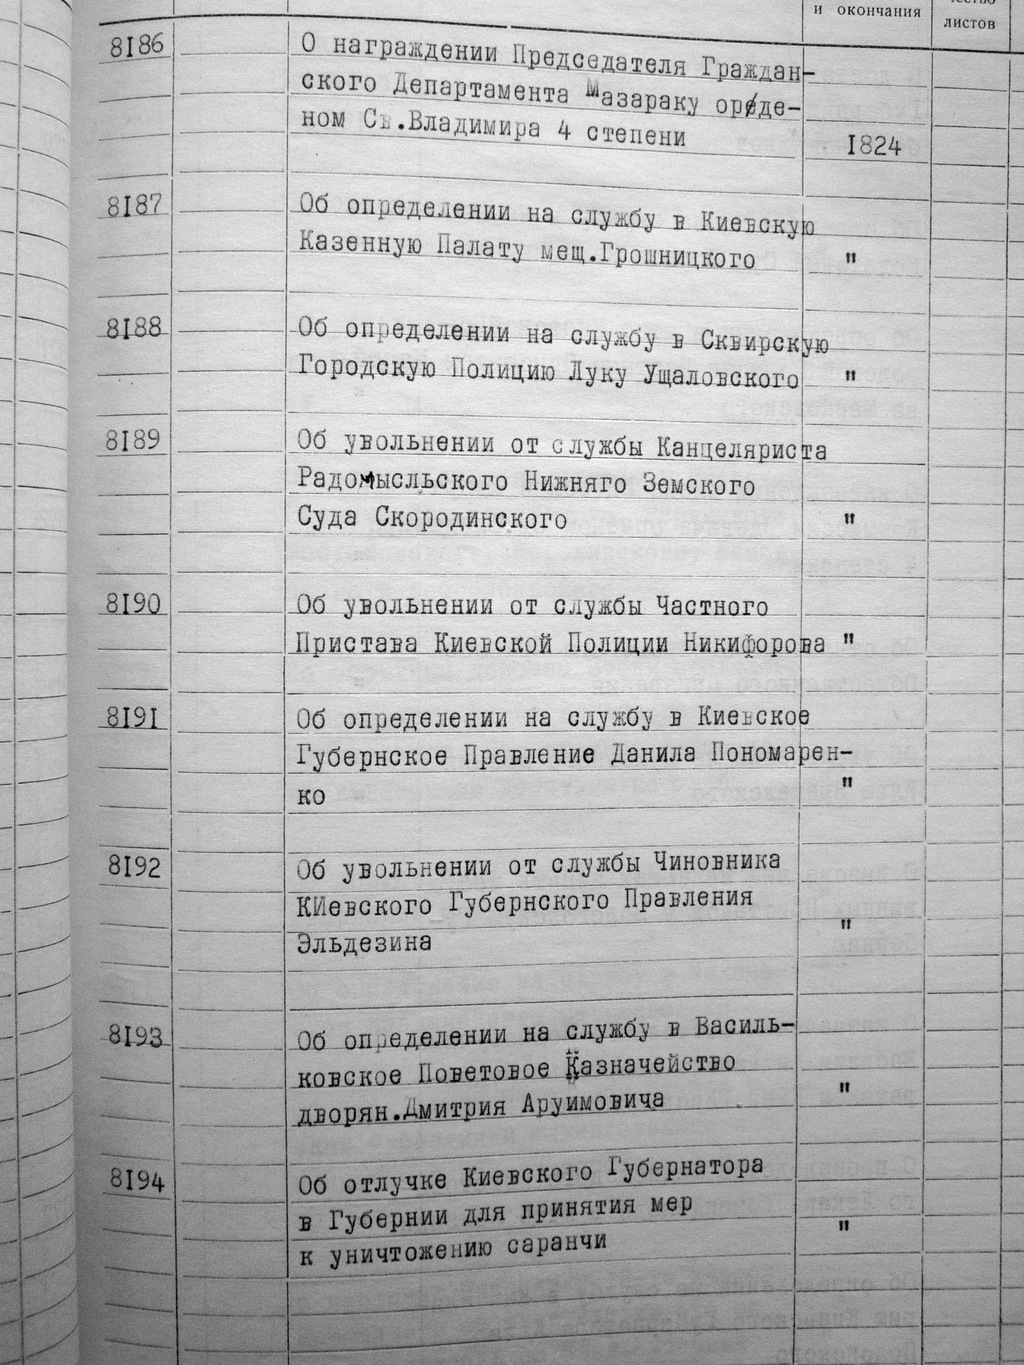 и окончания
листов
8186
О награждении Председателя Граждан-
ского Департамента Мазараку орде-
ном Св.Владимира 4 степени
1824
8187
Об определении на службу в Киевскую
Казенную Палату мещ.Грошницкого "
8188
Об определении на службу в Сквирскую
Городскую Полицию Луку Ущаловского "
8189
Об увольнении от службы Канцеляриста
Радомысльского Нижняго Земского
Суда Скородинского "
8190
Об увольнении от службы Частного
Пристава Киевской Полиции Никифорова "
8191
Об определении на службу в Киевское
Губернское Правление Данила Пономарен-
ко "
8192
Об увольнении от службы Чиновника
КИевского Губернского Правления
Эльдезина "
8193
Об определении на службу в Василь-
ковское Поветовое Казначейство
дворян.Дмитрия Аруимовича "
8194
Об отлучке Киевского Губернатора
в Губернии для принятия мер
к уничтожению саранчи "